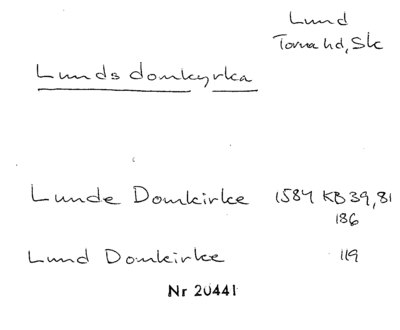 Lund
Torna hd, Sk
Lunds domkyrka
Lunde Domkirke 1584 KB 39, 81
186
Lund Domkirke 119
Nr 20441